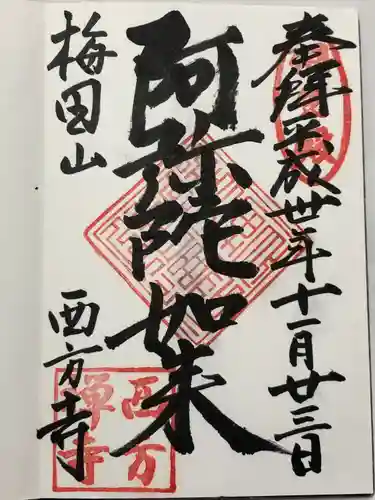 奉拝 平成卅年十一月廿三日
阿弥陀如来
梅田山
西方寺
西方
禅寺